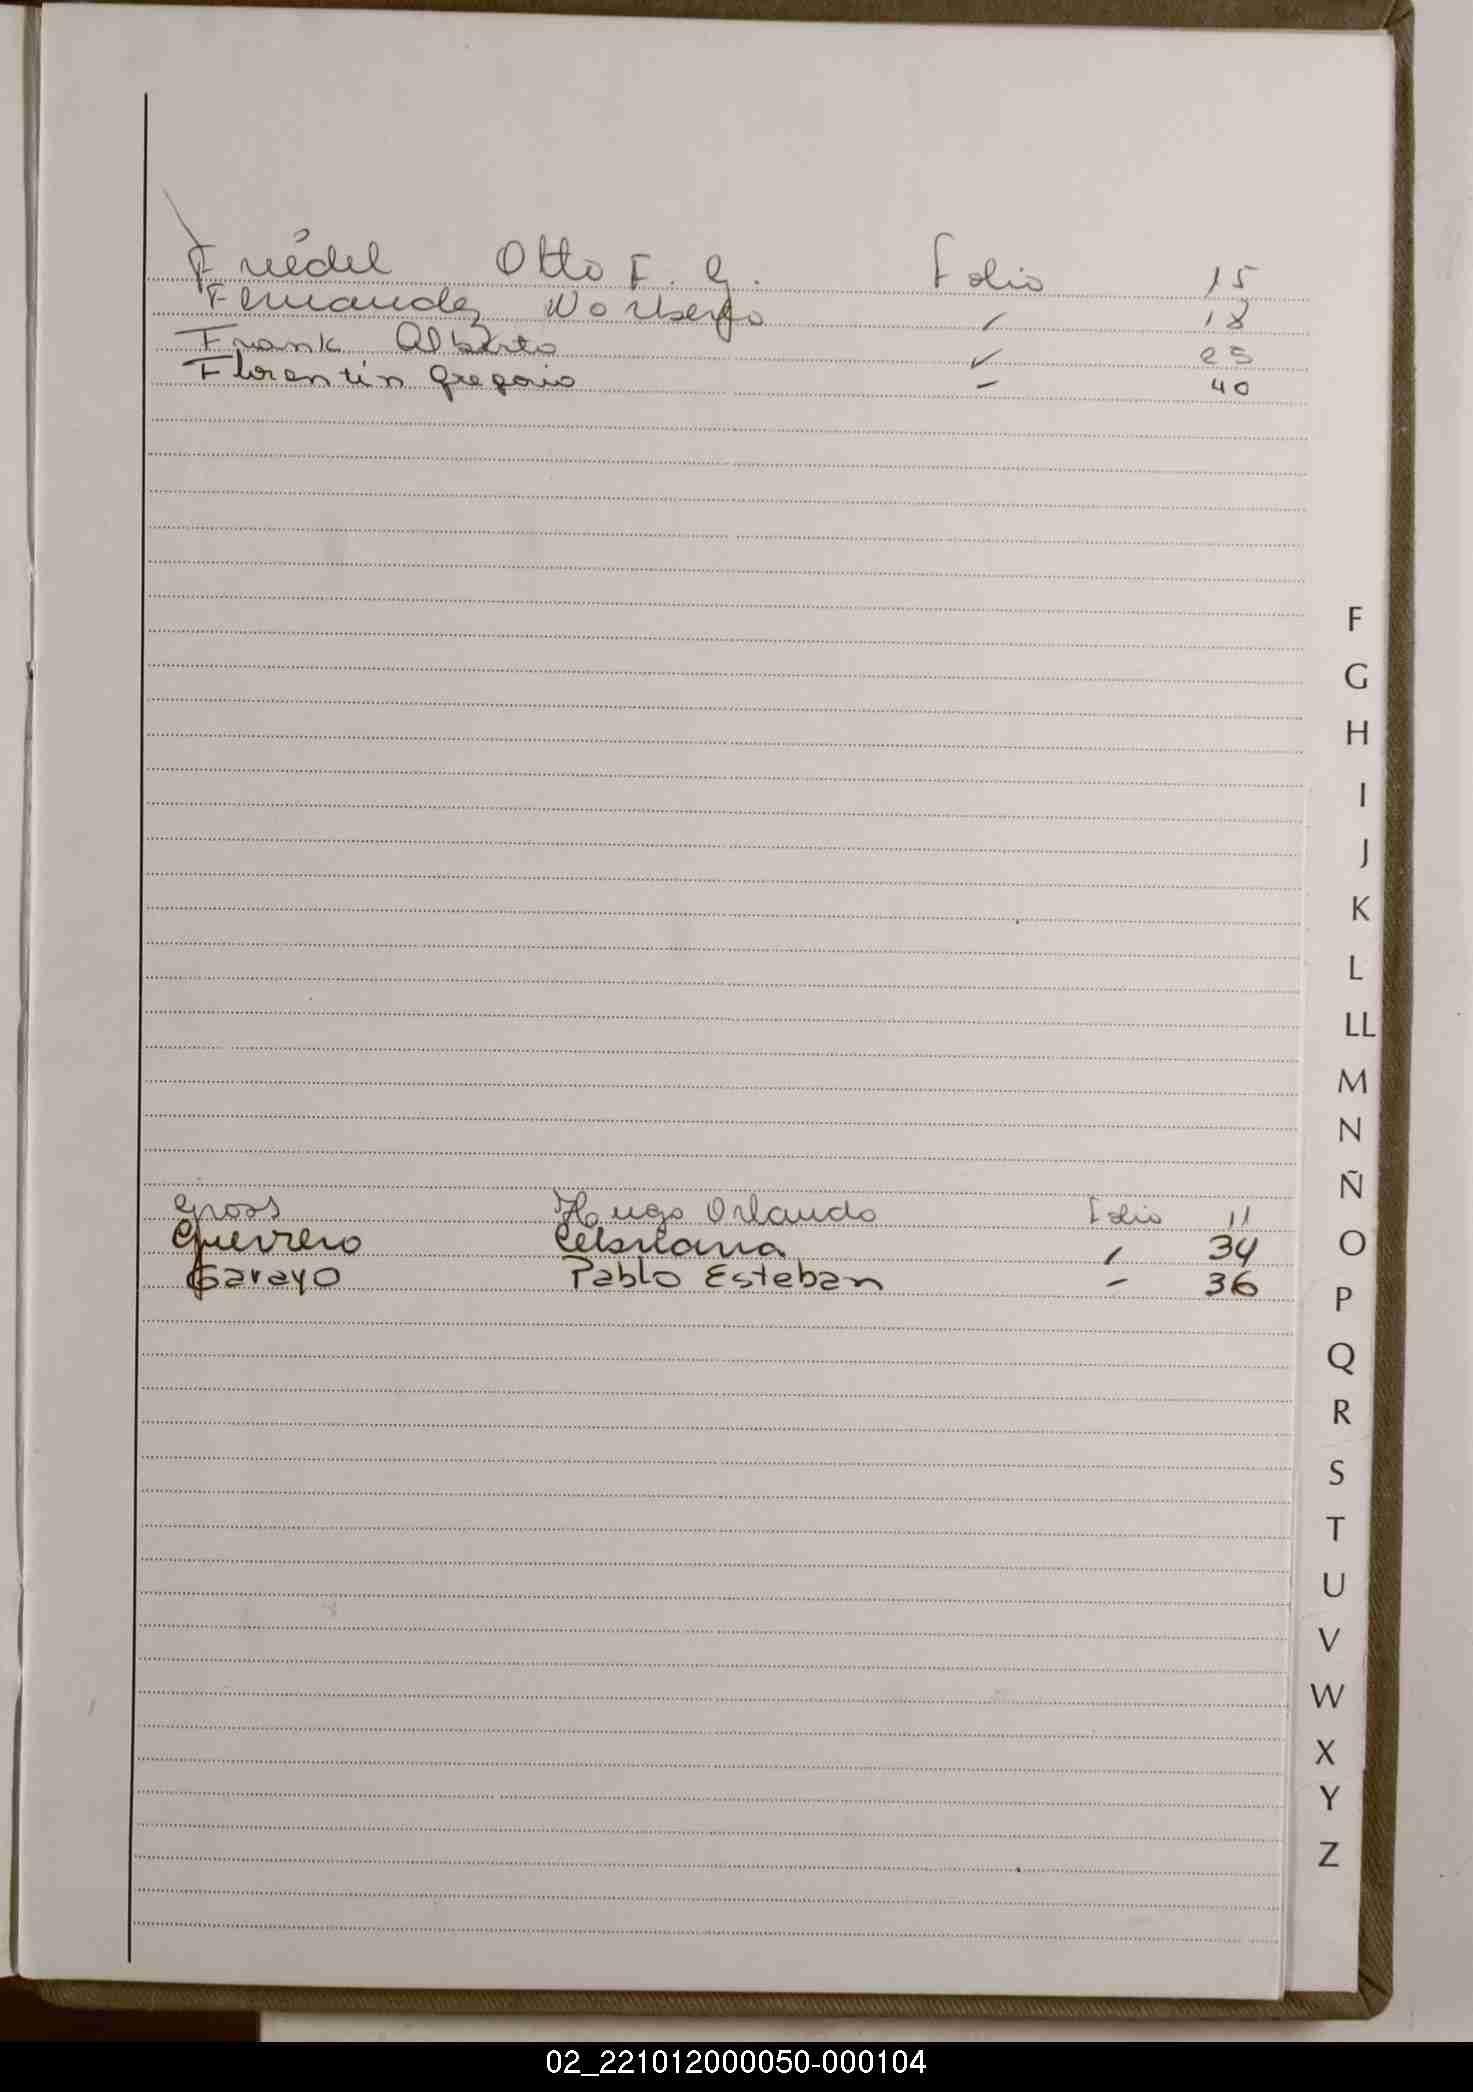 Friédel Otto F. G. Folio 15
Fernandez Norberto " 18
Frank Alberto " 25
Florentín Gregorio - 40
F
G
H
I
J
K
L
LL
M
N
Ñ
Gross Hugo Orlando Folio 11
Guerrero " 34
O
Garayo Pablo Esteban - 36
P
Q
R
S
T
U
V
W
X
Y
Z
02_221012000050-000104